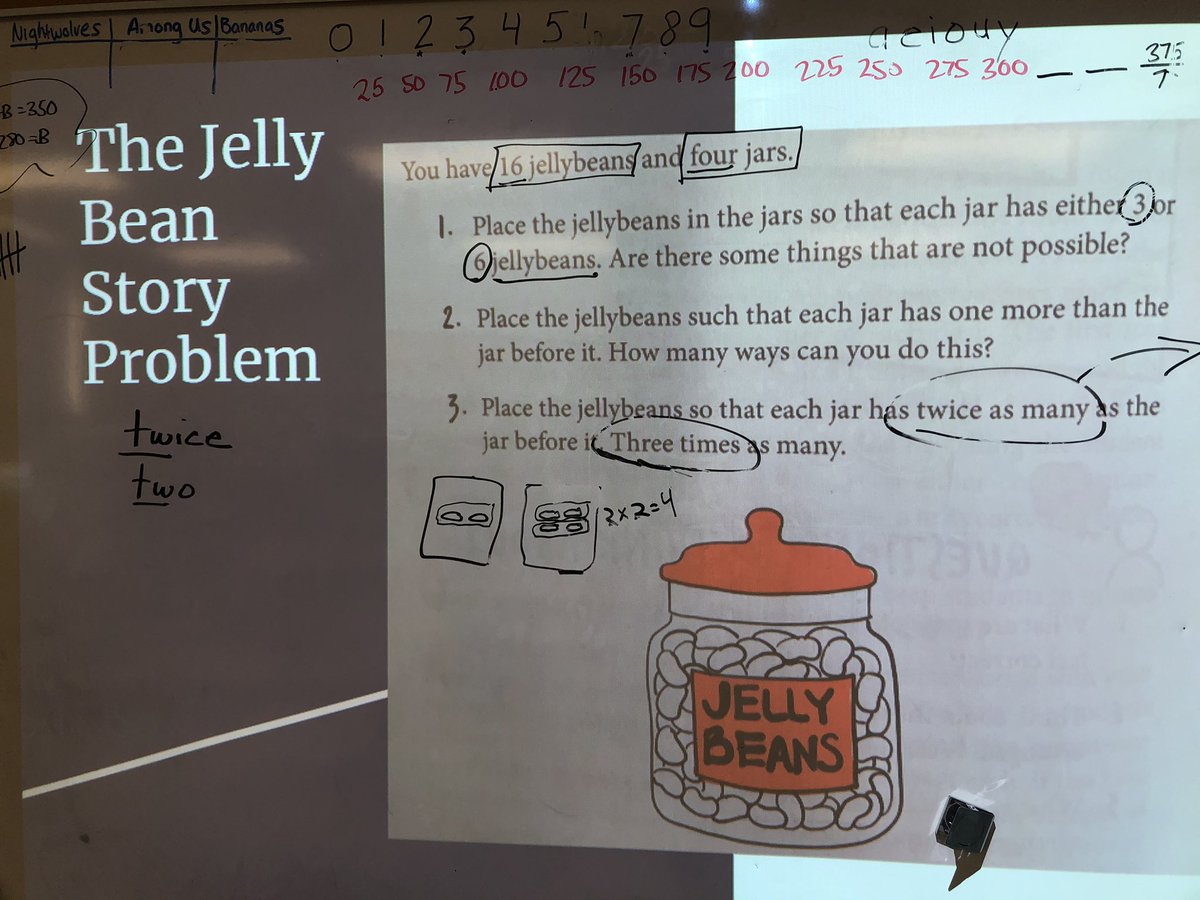 Nightwolves | Among Us | Bananas
0 1 2 3 4 5 6 7 8 9
a e i o u y
25 50 75 100 125 150 175 200 225 250 275 300 _ _ 375
7
B = 350
280 = B
The Jelly
Bean
Story
Problem
twice
two
You have 16 jellybeans and four jars.
1. Place the jellybeans in the jars so that each jar has either 3 or
6 jellybeans. Are there some things that are not possible?
2. Place the jellybeans such that each jar has one more than the
jar before it. How many ways can you do this?
3. Place the jellybeans so that each jar has twice as many as the
jar before it. Three times as many.
2x2=4
JELLY
BEANS